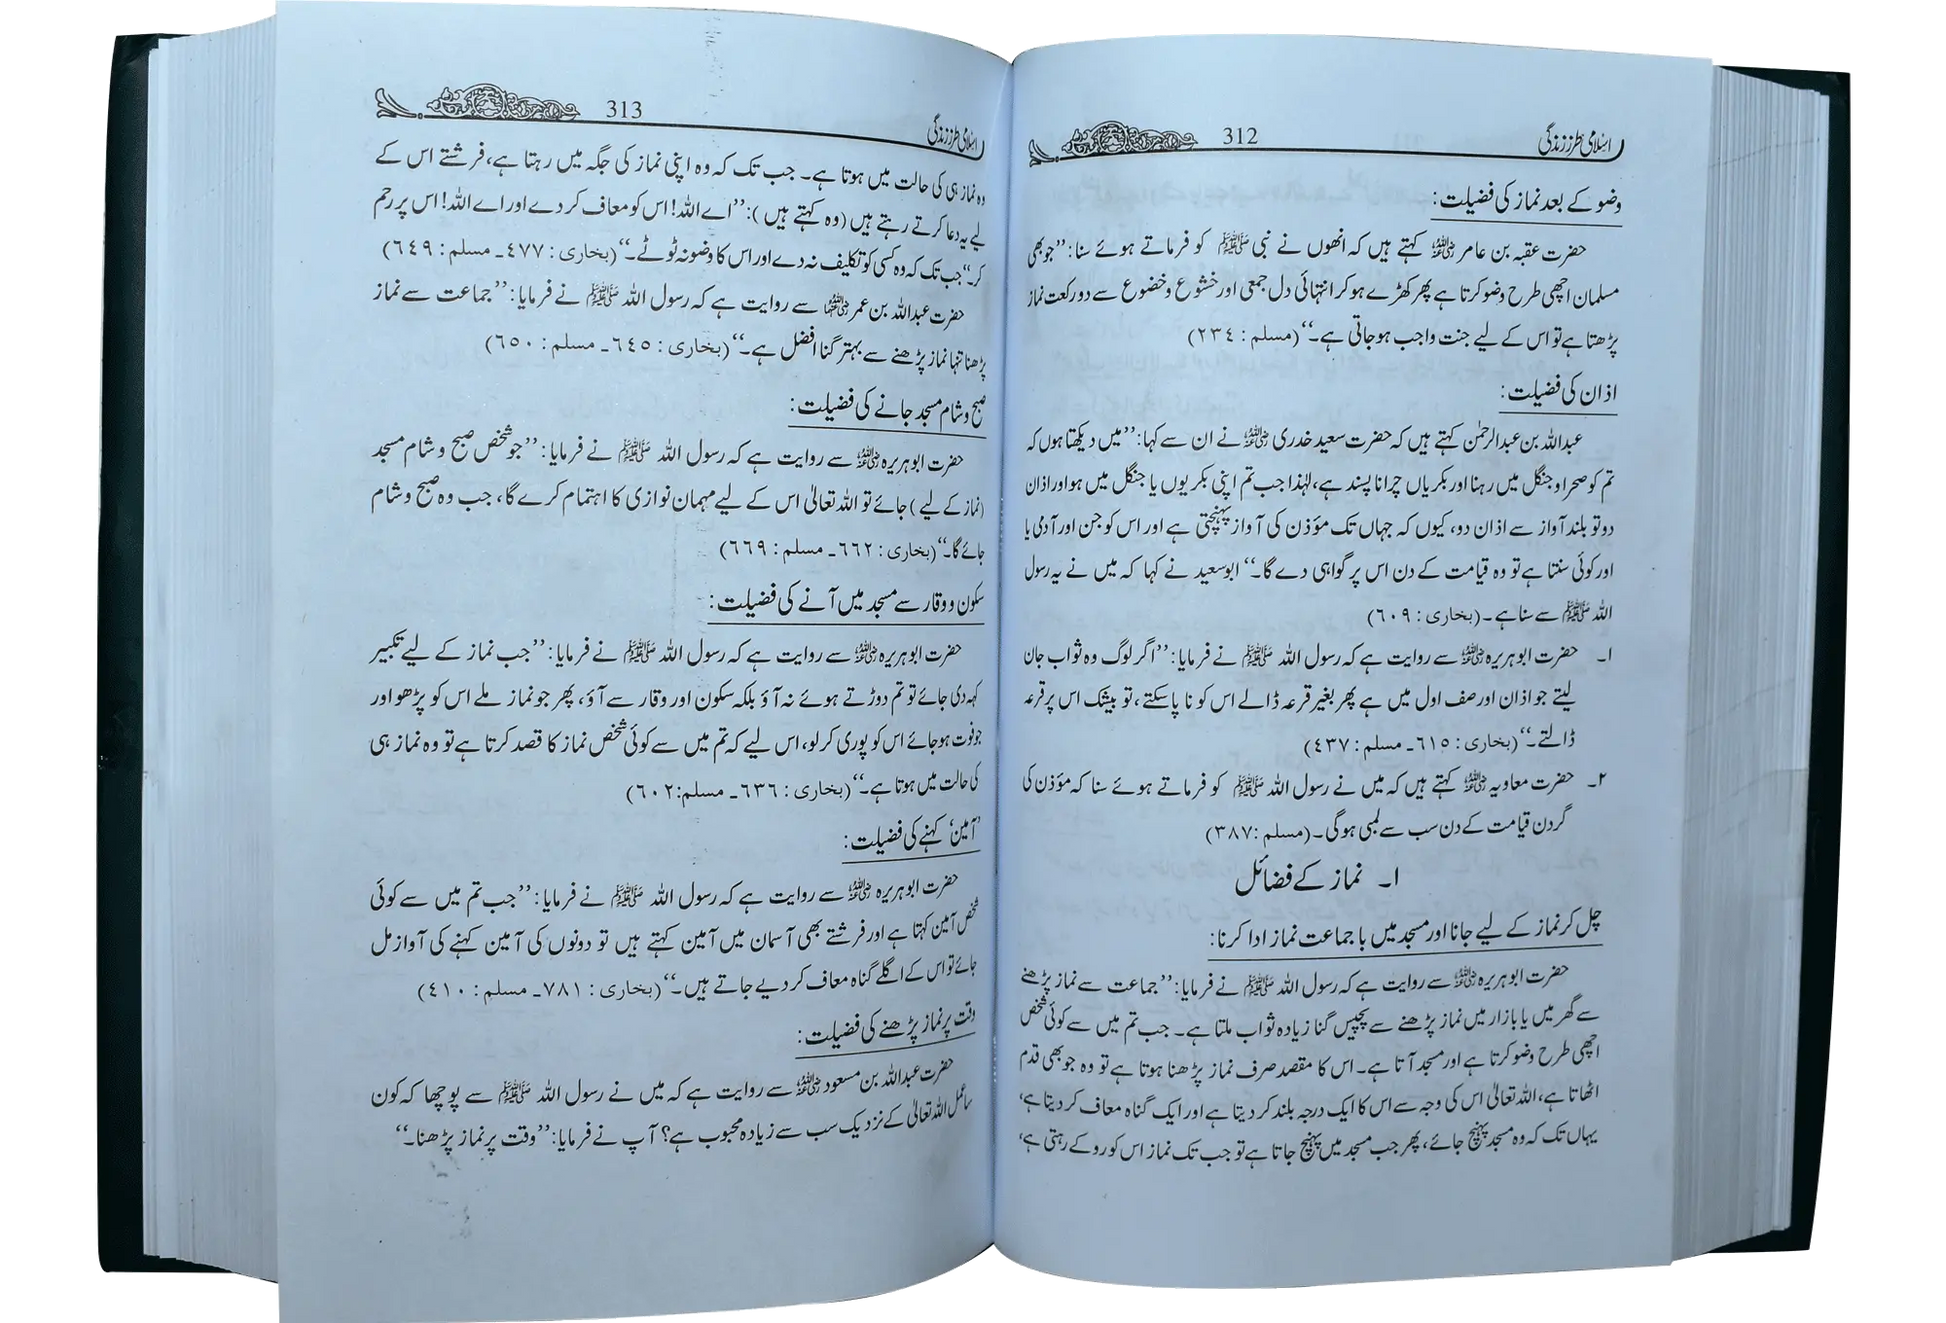 اسلامی طرز زندگی 312
وضو کے بعد نماز کی فضیلت:
حضرت عقبہ بن عامر ؓ کہتے ہیں کہ انھوں نے نبی ﷺ کو فرماتے ہوئے سنا: ”جو بھی
مسلمان اچھی طرح وضو کرتا ہے پھر کھڑے ہو کر انتہائی دل جمعی اور خشوع وخضوع سے دو رکعت نماز
پڑھتا ہے تو اس کے لیے جنت واجب ہو جاتی ہے۔“ (مسلم : ٢٣٤)
اذان کی فضیلت:
عبداللہ بن عبدالرحمٰن کہتے ہیں کہ حضرت سعید خدری ؓ نے ان سے کہا: ”میں دیکھتا ہوں کہ
تم کو صحرا و جنگل میں رہنا اور بکریاں چرانا پسند ہے، لہٰذا جب تم اپنی بکریوں یا جنگل میں ہو اور اذان
دو تو بلند آواز سے اذان دو، کیوں کہ جہاں تک مؤذن کی آواز پہنچتی ہے اور اس کو جن اور آدمی یا
اور کوئی سنتا ہے تو وہ قیامت کے دن اس پر گواہی دے گا۔“ ابوسعید نے کہا کہ میں نے یہ رسول
اللہ ﷺ سے سنا ہے۔ (بخاری : ٦٠٩)
١۔ حضرت ابوہریرہ ؓ سے روایت ہے کہ رسول اللہ ﷺ نے فرمایا: ”اگر لوگ وہ ثواب جان
لیتے جو اذان اور صف اول میں ہے پھر بغیر قرعہ ڈالے اس کو نا پاسکتے، تو بیشک اس پر قرعہ
ڈالتے۔“ (بخاری : ٦١٥۔ مسلم : ٤٣٧)
٢۔ حضرت معاویہ ؓ کہتے ہیں کہ میں نے رسول اللہ ﷺ کو فرماتے ہوئے سنا کہ مؤذن کی
گردن قیامت کے دن سب سے لمبی ہوگی۔ (مسلم : ٣٨٧)
١۔ نماز کے فضائل
چل کر نماز کے لیے جانا اور مسجد میں با جماعت نماز ادا کرنا:
حضرت ابوہریرہ ؓ سے روایت ہے کہ رسول اللہ ﷺ نے فرمایا: ”جماعت سے نماز پڑھنے
سے گھر میں یا بازار میں نماز پڑھنے سے پچیس گنا زیادہ ثواب ملتا ہے۔ جب تم میں سے کوئی شخص
اچھی طرح وضو کرتا ہے اور مسجد آتا ہے۔ اس کا مقصد صرف نماز پڑھنا ہوتا ہے تو وہ جو بھی قدم
اٹھاتا ہے، اللہ تعالیٰ اس کی وجہ سے اس کا ایک درجہ بلند کر دیتا ہے اور ایک گناہ معاف کر دیتا ہے،
یہاں تک کہ وہ مسجد پہنچ جائے، پھر جب مسجد میں پہنچ جاتا ہے تو جب تک نماز اس کو روکے رہتی ہے،
اسلامی طرز زندگی 313
وہ نماز ہی کی حالت میں ہوتا ہے۔ جب تک کہ وہ اپنی نماز کی جگہ میں رہتا ہے، فرشتے اس کے
لیے یہ دعا کرتے رہتے ہیں (وہ کہتے ہیں): ”اے اللہ! اس کو معاف کر دے اور اے اللہ! اس پر رحم
کر۔“ جب تک کہ وہ کسی کو تکلیف نہ دے اور اس کا وضو نہ ٹوٹے۔“ (بخاری : ٤٧٧۔ مسلم : ٦٤٩)
حضرت عبداللہ بن عمر ؓ سے روایت ہے کہ رسول اللہ ﷺ نے فرمایا: ”جماعت سے نماز
پڑھنا تنہا نماز پڑھنے سے بہتر گنا افضل ہے۔“ (بخاری : ٦٤٥۔ مسلم : ٦٥٠)
صبح و شام مسجد جانے کی فضیلت:
حضرت ابوہریرہ ؓ سے روایت ہے کہ رسول اللہ ﷺ نے فرمایا: ”جو شخص صبح و شام مسجد
(نماز کے لیے) جائے تو اللہ تعالیٰ اس کے لیے مہمان نوازی کا اہتمام کرے گا، جب وہ صبح و شام
جائے گا۔“ (بخاری : ٦٦٢۔ مسلم : ٦٦٩)
سکون و وقار سے مسجد میں آنے کی فضیلت:
حضرت ابوہریرہ ؓ سے روایت ہے کہ رسول اللہ ﷺ نے فرمایا: ”جب نماز کے لیے تکبیر
کہہ دی جائے تو تم دوڑتے ہوئے نہ آؤ بلکہ سکون اور وقار سے آؤ، پھر جو نماز ملے اس کو پڑھو اور
جو فوت ہو جائے اس کو پوری کر لو، اس لیے کہ تم میں سے کوئی شخص نماز کا قصد کرتا ہے تو وہ نماز ہی
کی حالت میں ہوتا ہے۔“ (بخاری : ٦٣٦۔ مسلم: ٦٠٢)
’آمین‘ کہنے کی فضیلت:
حضرت ابوہریرہ ؓ سے روایت ہے کہ رسول اللہ ﷺ نے فرمایا: ”جب تم میں سے کوئی
شخص آمین کہتا ہے اور فرشتے بھی آسمان میں آمین کہتے ہیں تو دونوں کی آمین کہنے کی آواز مل
جائے تو اس کے اگلے گناہ معاف کر دیے جاتے ہیں۔“ (بخاری : ٧٨١۔ مسلم : ٤١٠)
وقت پر نماز پڑھنے کی فضیلت:
حضرت عبداللہ بن مسعود ؓ سے روایت ہے کہ میں نے رسول اللہ ﷺ سے پوچھا کہ کون
سا عمل اللہ تعالیٰ کے نزدیک سب سے زیادہ محبوب ہے؟ آپ نے فرمایا: ”وقت پر نماز پڑھنا۔“